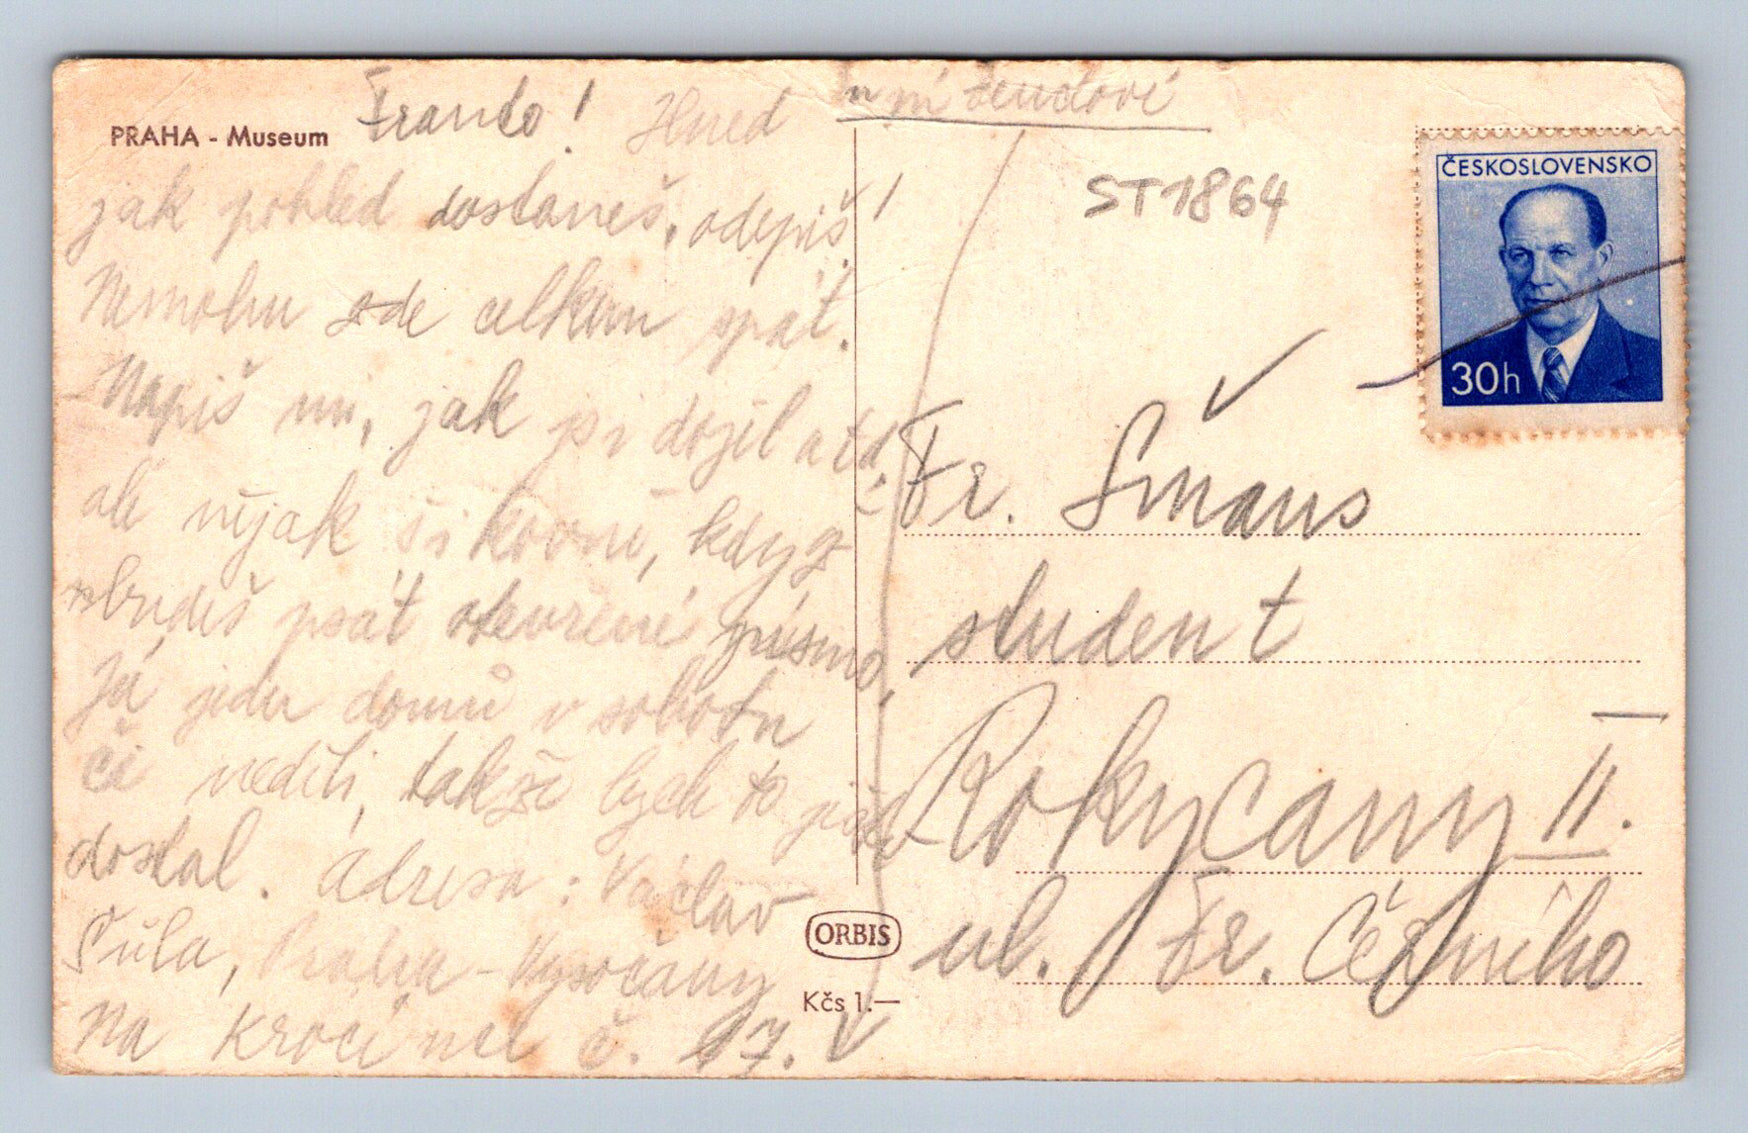 PRAHA - Museum
Franto! Hned
jak pohled dostaneš, odepiš!
Nemohu zde celkem spát.
Napiš mi, jak jsi dojel atd.
ale nějak šikovně, když
budeš psát otevřené písmo.
Já jedu domů v sobotu
či neděli, takže bych to již
dostal. Adresa: Václav
Šůla, Praha-Vysočany
Na Krocínce č. 17.
ST1864
ČESKOSLOVENSKO
30h
Fr. Šmaus
student
Rokycany II.
ul. Fr. Čézního
ORBIS
Kčs 1.—